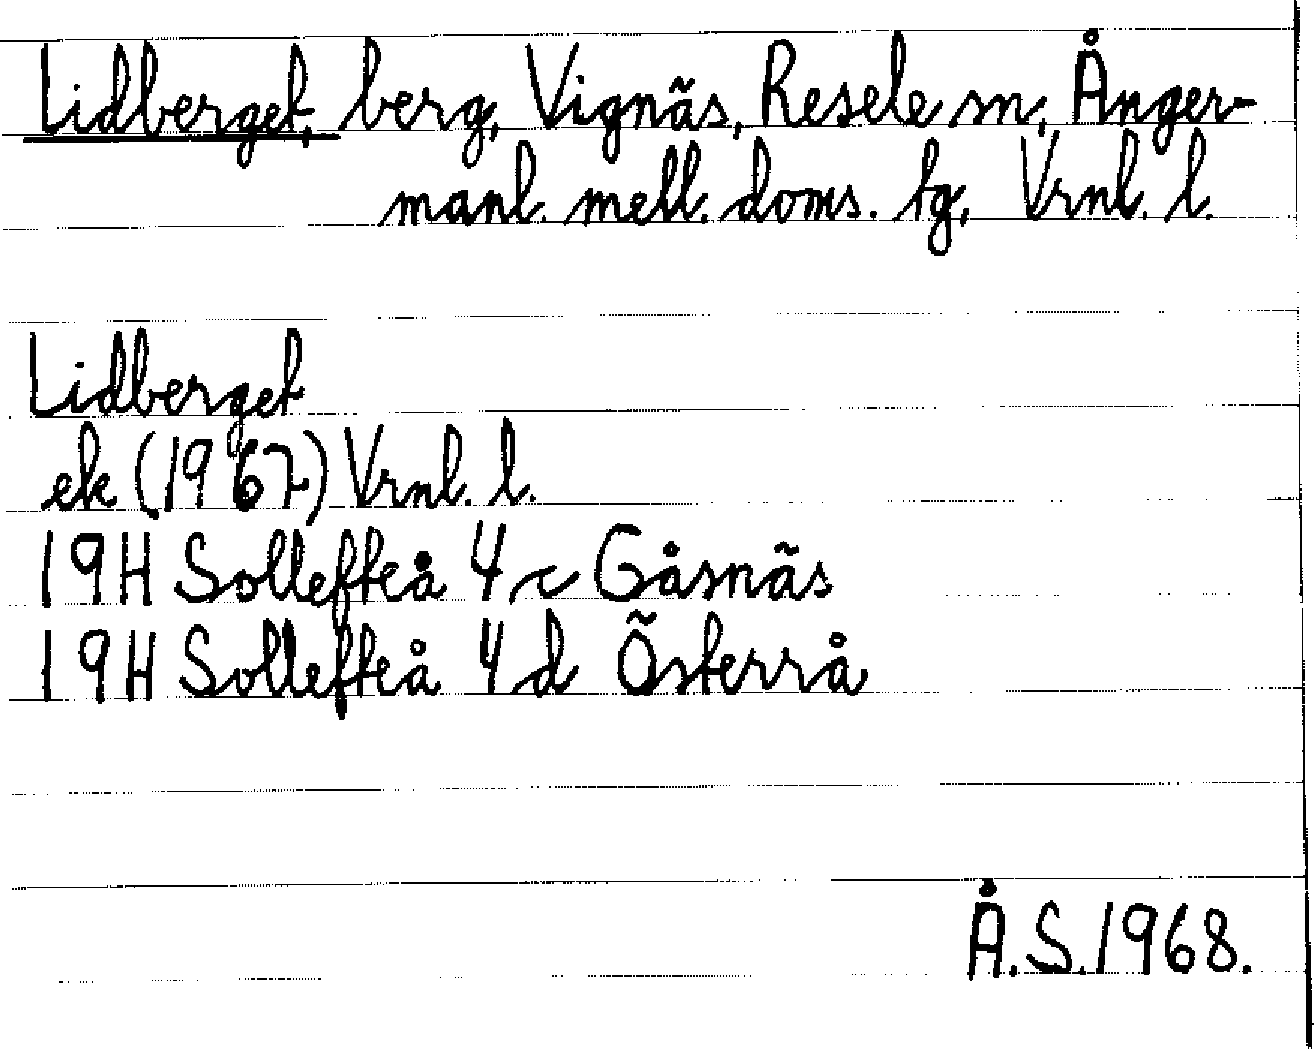 Lidberget, berg, Vignäs, Resele sn, Ånger-
manl. mell. doms. tg, Vrnl. l.
Lidberget
ek (1967) Vrnl. l.
19H Sollefteå 4c Gåsnäs
19H Sollefteå 4d Österrå
Å.S. 1968.